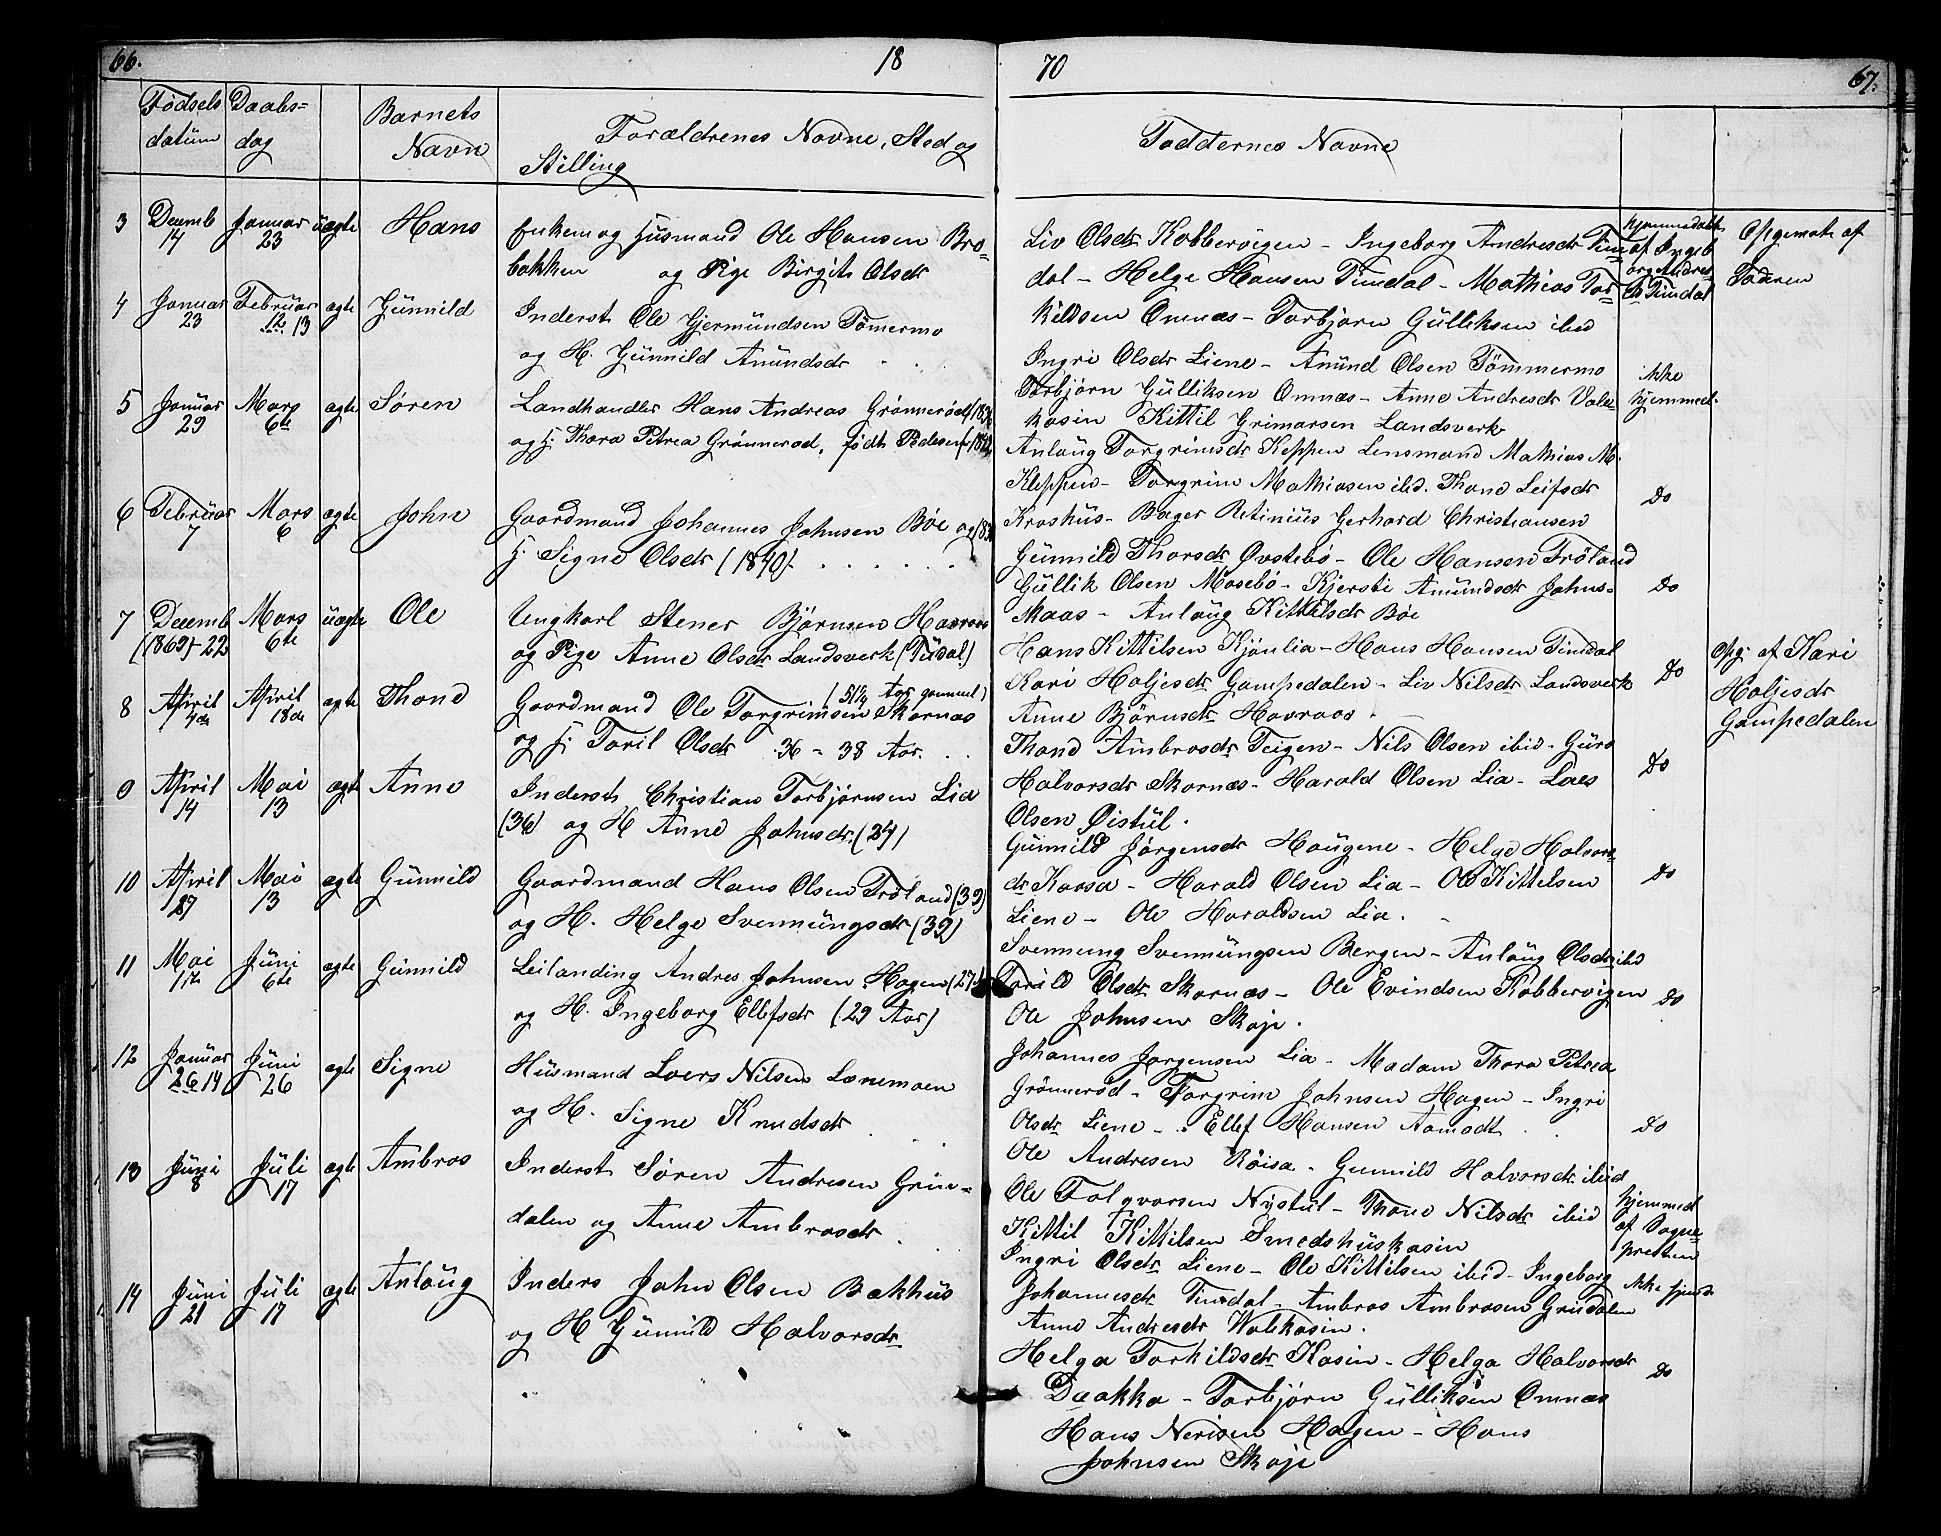 66. 18
Fødsels Daabs= Barnets
datum dag Navn
Forældrenes Navne, Sted og
Stilling
3 Decemb Januar uægte Hans Enkem og Husmand Ole Hansen Bro-
14 23 bakken og Pige Birgit Olsdr
4 Januar Februar ægte Gunnild Inderst Ole Gjermundsen Tömermo
23 12 13 og H. Gunnild Amundsdr
5 Januar Mars ægte Søren Landhandler Hans Andreas Grönnerød
29 6te og H. Thora Petrea Grönnerød, født Pedersen
6 Februar Mars ægte John Gaardmand Johannes Johnsen Böe og
7 6 H. Signe Olsdr (1840)
7 Decemb Mars uægte Ole Ungkarl Stener Björnsen Hovraas
(1869)-22 6te og Pige Anne Olsdr Landsverk (Tudal)
8 April April ægte Thone Gaardmand Ole Torgrimsen Skornæs (51½ Aar gammel)
4de 18de og H. Toril Olsdr 36 - 38 Aar.
9 April Mai ægte Anne Inderst Christian Torbjörnsen Lia
14 13 (36) og H Anne Johnsdr (24)
10 April Mai ægte Gunnild Gaardmand Hans Olsen Tröland (39)
27 13 og H. Helge Svennungsdr (39)
11 Mai Juni ægte Gunnild Leilanding Andres Johnsen Hagen (27)
17de 6te og H. Ingeborg Ellefsdr (29 Aar)
12 Januar Juni ægte Signe Husmand Loers Nilsen Lonemoen
26 14 26 og H. Signe Knudsdr
13 Juni Juli ægte Ambros Inderst Søren Andresen Grin-
8 17 dalen og Anne Ambrosdr
14 Juni Juli ægte Anlaug Inders John Olsen Bakhus
21 17 og H Gunnild Halvorsdr
70 67.
Faddernes Navne
Liv Olsdr Kobbervigen - Ingeborg Andresdr Tin-
dal - Helge Hansen Tindal - Mathias Tor-
kildsen Omnæs - Torbjørn Gulliksen ibid
hjemmedøbt
af Ingeb
org Andres
dr Tindal
Opgemate af
Faderen
Ingri Olsdr Liene - Amund Olsen Tömmermo
Torbjørn Gulliksen Omnæs - Anne Andresdr Vale-
kasin Kittil Grimarsen Landsverk
ikke
hjemmed.
Anlaug Torgrimsdr Kleppen Lensmand Mathias M.
Kleppen - Torgrim Mathiasen ibid. Thone Leifsdr
Kroshus - Bager Retinius Gerhard Christiansen
Do
Gunnild Thorsdr Øvstebö - Ole Hansen Tröland
Gullik Olsen Mosebö - Kjersti Amundsdr Johns-
Maas - Anlaug Kittilsdr Böe
Do
Hans Kittilsen Kjønlia - Hans Hansen Tindal
Kari Holjesdr Gampedalen - Liv Nilsdr Landsverk
Anne Björnsdr Hovraas
Do
Opg. af Kari
Holjesdr
Gampedalen
Thone Ambrosdr Teigen - Nils Olsen ibid - Guro
Halvorsdr Skornæs - Harald Olsen Lia - Loes
Olsen Øistul.
Do
Gunnild Jörgensdr Haugene - Helge Halvors-
dr Kaasa - Harald Olsen Lia - Ole Kittelsen
Liene - Ole Haraldsen Lia.
Do
Svennung Svennungsen Bergen - Anlaug Olsdr ibid
Torild Olsdr Skornæs - Ole Evindsen Kobbervigen
Ole Johnsen Skoje.
Do
Johannes Jørgensen Lia - Madam Thora Petrea
Grönneröd - Torgrim Johnsen Hagen - Ingri
Olsdr Liene - Ellef Hansen Aamodt
Do
Ole Andresen Röisa - Gunnild Halvorsdr ibid
Ole Folqvorsen Nystul - Thone Nilsdr ibid
Kittil Kittilsen Smedshuskasin
hjemmed
af Sogne-
presten
Ingri Olsdr Liene - Ole Kittilsen ibid - Ingeborg
Johannesdr Tindal - Ambros Ambrosen Grudalen
Anne Andresdr Walekasin.
ikke hjemd
Helga Torkildsdr Kasin - Helga Halvorsdr
Daakka - Torbjørn Gulliksen Omnæs
Hans Nerisen Hagen - Hans
Johnsen Skoje
Do